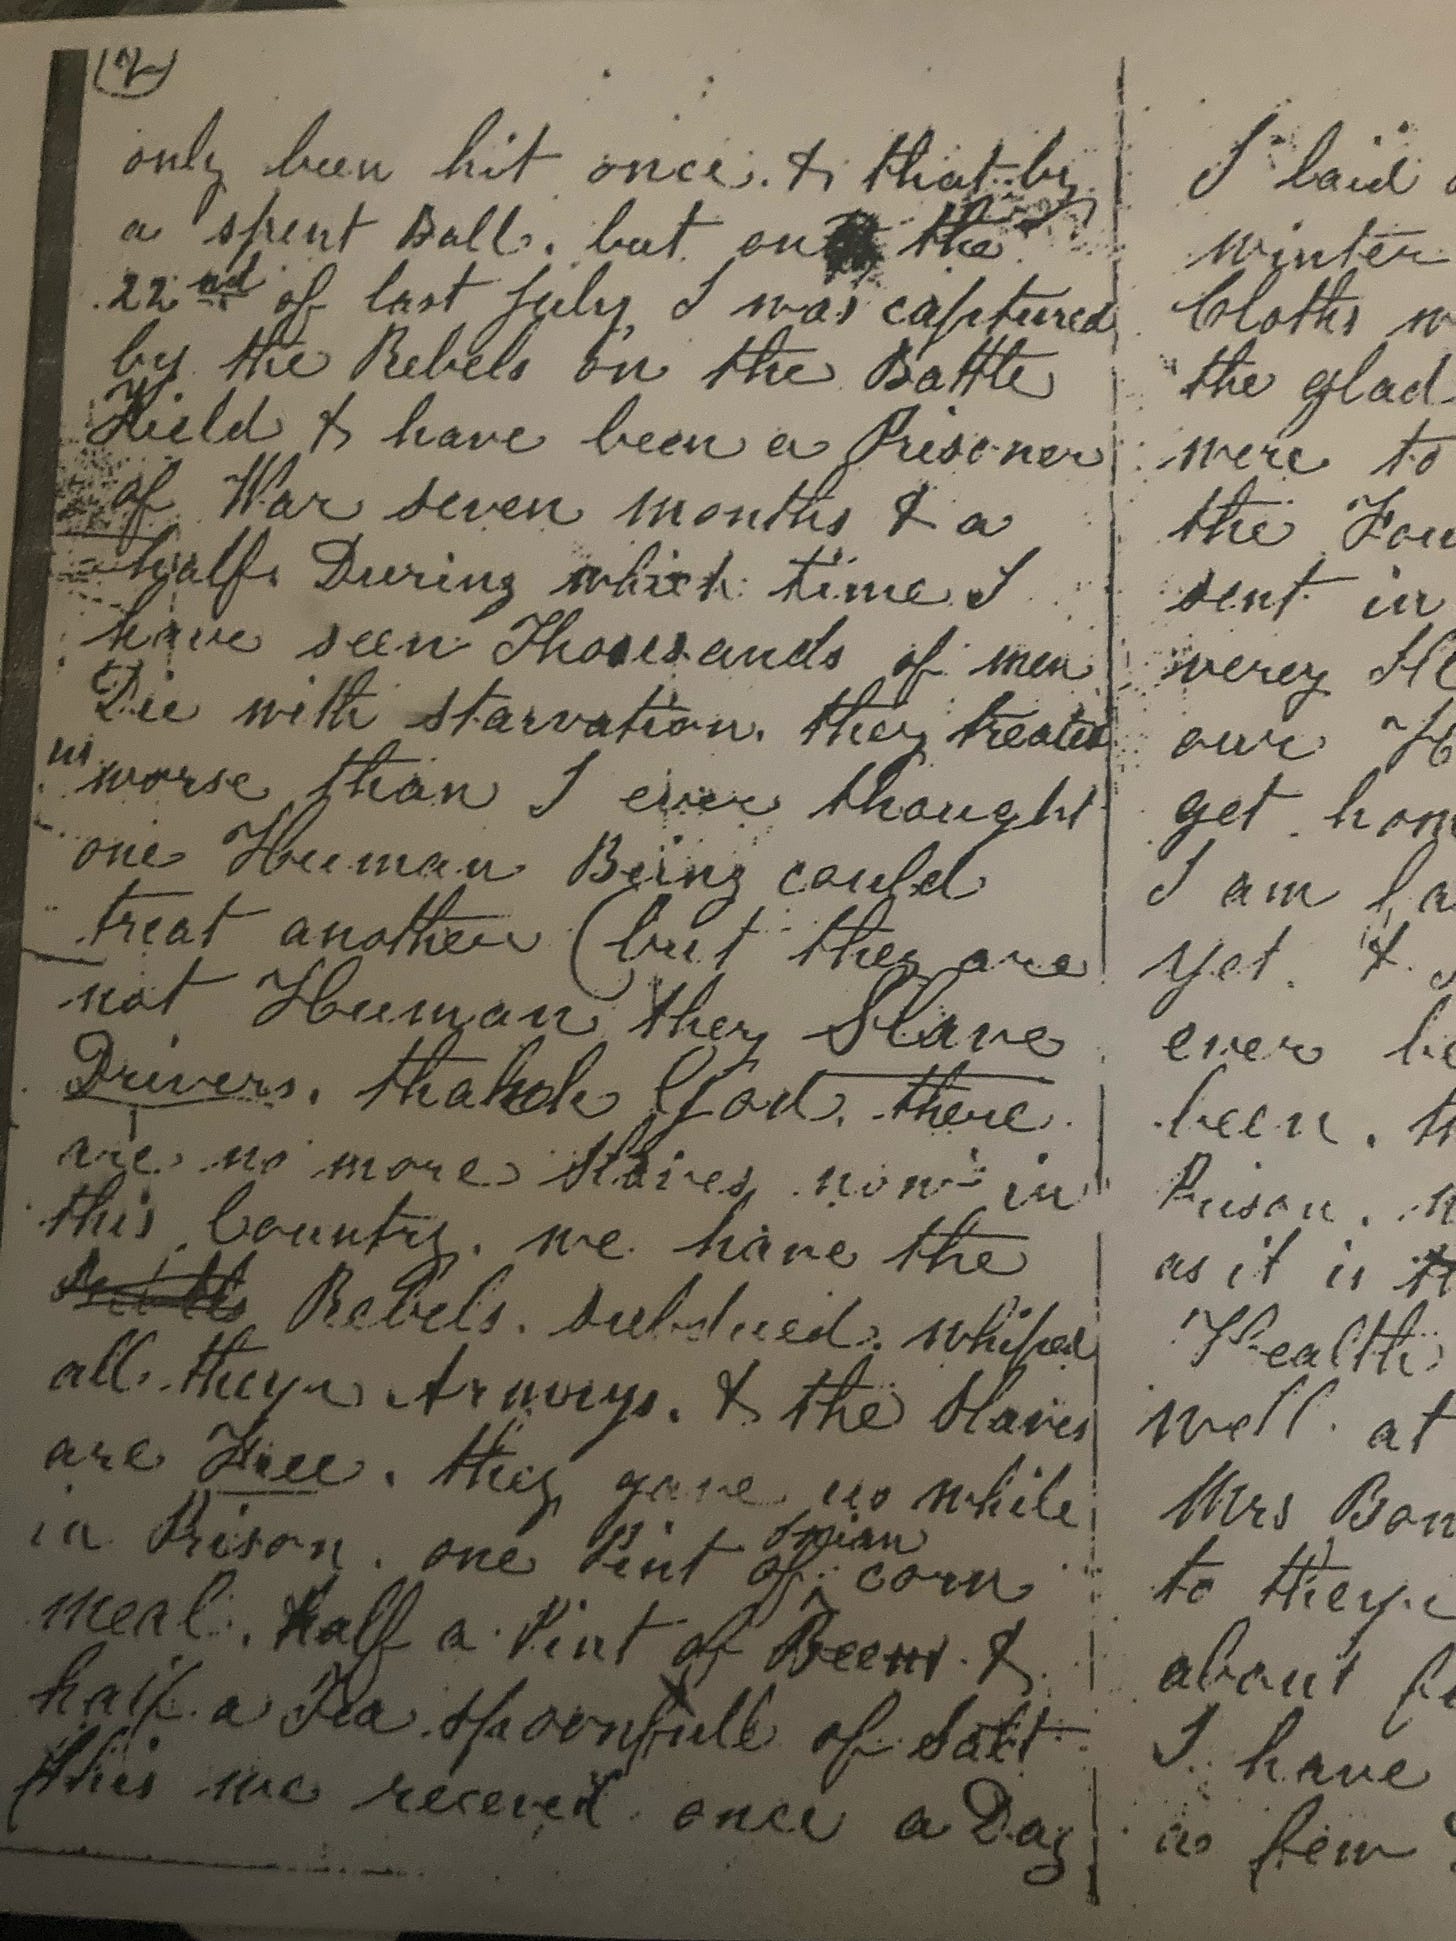 (2)
only been hit once. & that by
a spent Ball. but on the
22nd of last July, I was captured
by the Rebels on the Battle
Field & have been a Prisoner
of War seven months & a
half. During which time I
have seen Thousands of men
Die with starvation. they treated
us worse than I ever thought
one Human Being could
treat another (but they are
not Human they Slave
Drivers. thank God. there
are no more slaves now in
this Country. we have the
Rebels. subdued. whiped
all theyr Armys. & the Slaves
are Free. they gave us while
in Prison. one Pint of Indian corn
meal. half a Pint of Beens &
half a Tea spoonfull of Salt
this we receved once a Day
I laid
winter
Cloths
the glad
were to
the
sent in
verey
our
get
I am
yet. &
ever
been.
Prison.
as it is
Health
well. at
Mrs
to theyr
about
I have
a few